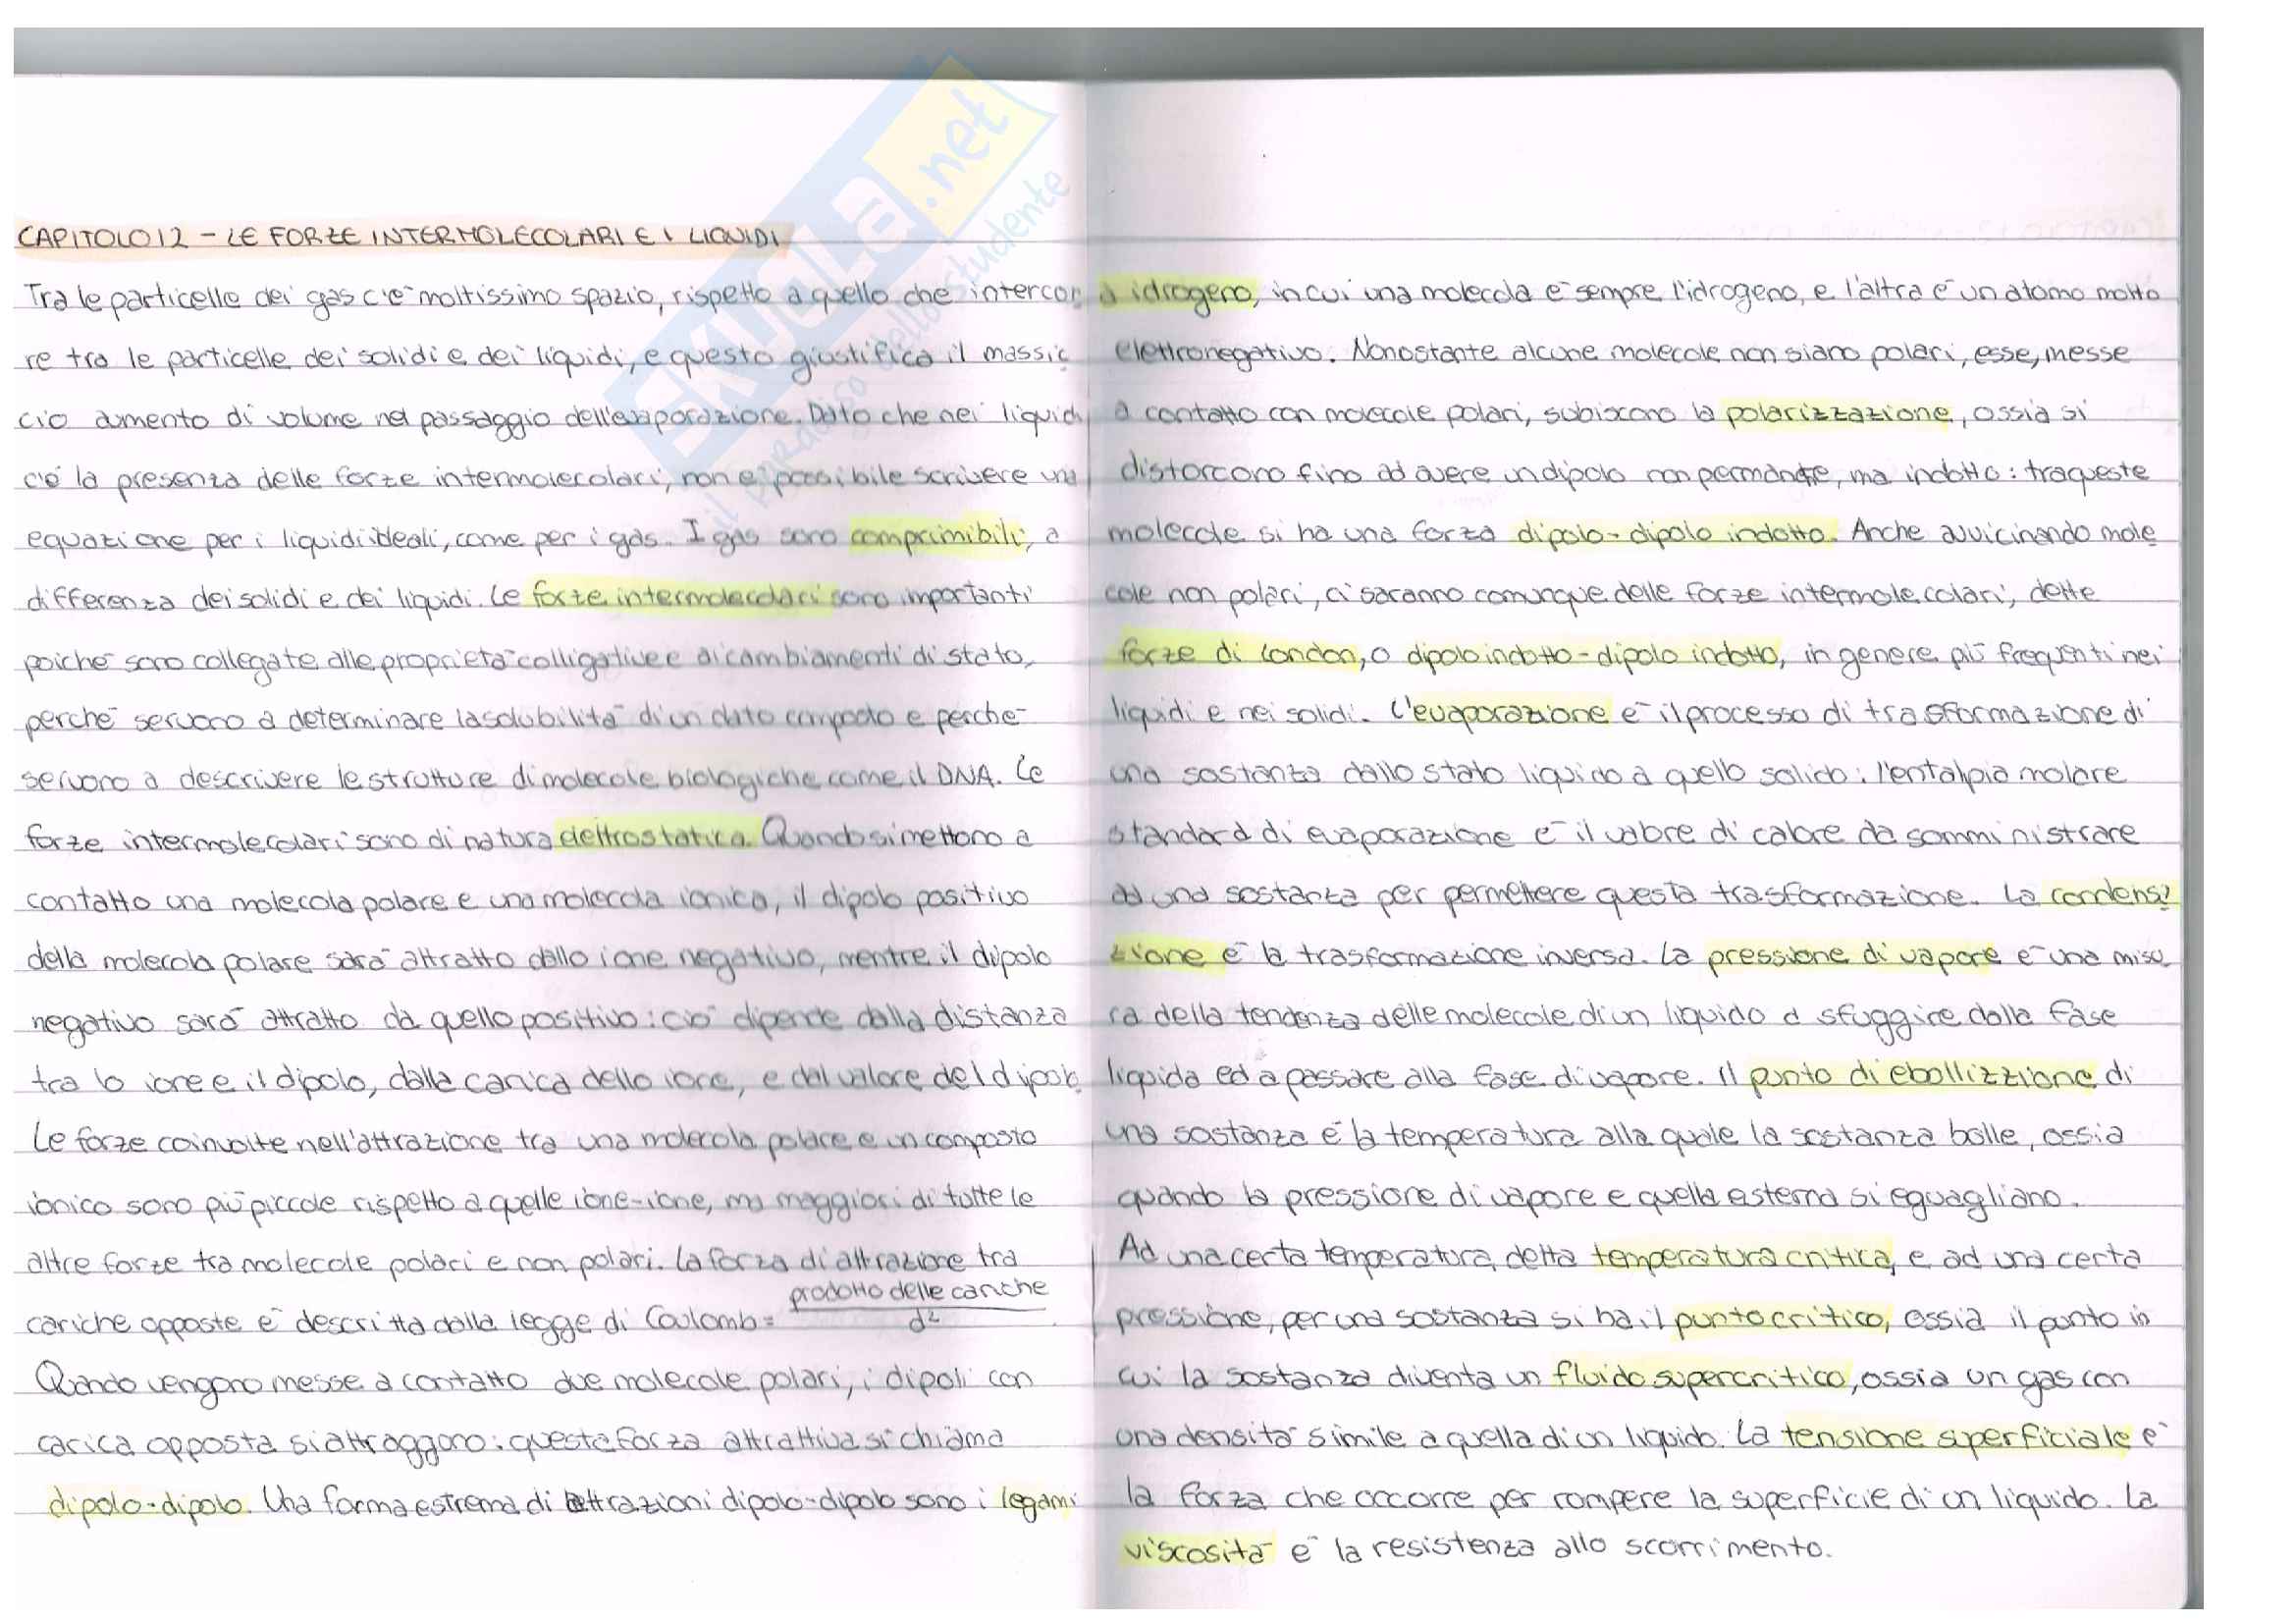 CAPITOLO 12 - LE FORZE INTERMOLECOLARI E I LIQUIDI
Tra le particelle dei gas c'è moltissimo spazio, rispetto a quello che intercor
re tra le particelle dei solidi e dei liquidi, e questo giustifica il massic
cio aumento di volume nel passaggio dell'evaporazione. Dato che nei liquidi
c'è la presenza delle forze intermolecolari, non è possibile scrivere una
equazione per i liquidi ideali, come per i gas. I gas sono comprimibili, a
differenza dei solidi e dei liquidi. Le forze intermolecolari sono importanti
poiché sono collegate alle proprietà colligative e ai cambiamenti di stato,
perché servono a determinare la solubilità di un dato composto e perché
servono a descrivere le strutture di molecole biologiche come il DNA. Le
forze intermolecolari sono di natura elettrostatica. Quando si mettono a
contatto una molecola polare e una molecola ionica, il dipolo positivo
della molecola polare sarà attratto dallo ione negativo, mentre il dipolo
negativo sarà attratto da quello positivo: ciò dipende dalla distanza
tra lo ione e il dipolo, dalla carica dello ione, e dal valore del dipolo.
Le forze coinvolte nell'attrazione tra una molecola polare e un composto
ionico sono più piccole rispetto a quelle ione-ione, ma maggiori di tutte le
altre forze tra molecole polari e non polari. La forza di attrazione tra
cariche opposte è descritta dalla legge di Coulomb = prodotto delle cariche / d²
Quando vengono messe a contatto due molecole polari, i dipoli con
carica opposta si attraggono: questa forza attrattiva si chiama
dipolo-dipolo. Una forma estrema di attrazioni dipolo-dipolo sono i legami
a idrogeno, in cui una molecola è sempre l'idrogeno, e l'altra è un atomo molto
elettronegativo. Nonostante alcune molecole non siano polari, esse, messe
a contatto con molecole polari, subiscono la polarizzazione, ossia si
distorcono fino ad avere un dipolo non permanente, ma indotto: tra queste
molecole si ha una forza dipolo-dipolo indotto. Anche avvicinando mole
cole non polari, ci saranno comunque delle forze intermolecolari, dette
forze di London, o dipolo indotto-dipolo indotto, in genere più frequenti nei
liquidi e nei solidi. L'evaporazione è il processo di trasformazione di
una sostanza dallo stato liquido a quello solido: l'entalpia molare
standard di evaporazione è il valore di calore da somministrare
ad una sostanza per permettere questa trasformazione. La condensa
zione è la trasformazione inversa. La pressione di vapore è una misu
ra della tendenza delle molecole di un liquido a sfuggire dalla fase
liquida ed a passare alla fase di vapore. Il punto di ebollizzione di
una sostanza è la temperatura alla quale la sostanza bolle, ossia
quando la pressione di vapore e quella esterna si eguagliano.
Ad una certa temperatura, detta temperatura critica, e ad una certa
pressione, per una sostanza si ha il punto critico, ossia il punto in
cui la sostanza diventa un fluido supercritico, ossia un gas con
una densità simile a quella di un liquido. La tensione superficiale è
la forza che occorre per rompere la superficie di un liquido. La
viscosità è la resistenza allo scorrimento.
SKUOLA.net
il paradiso dello studente